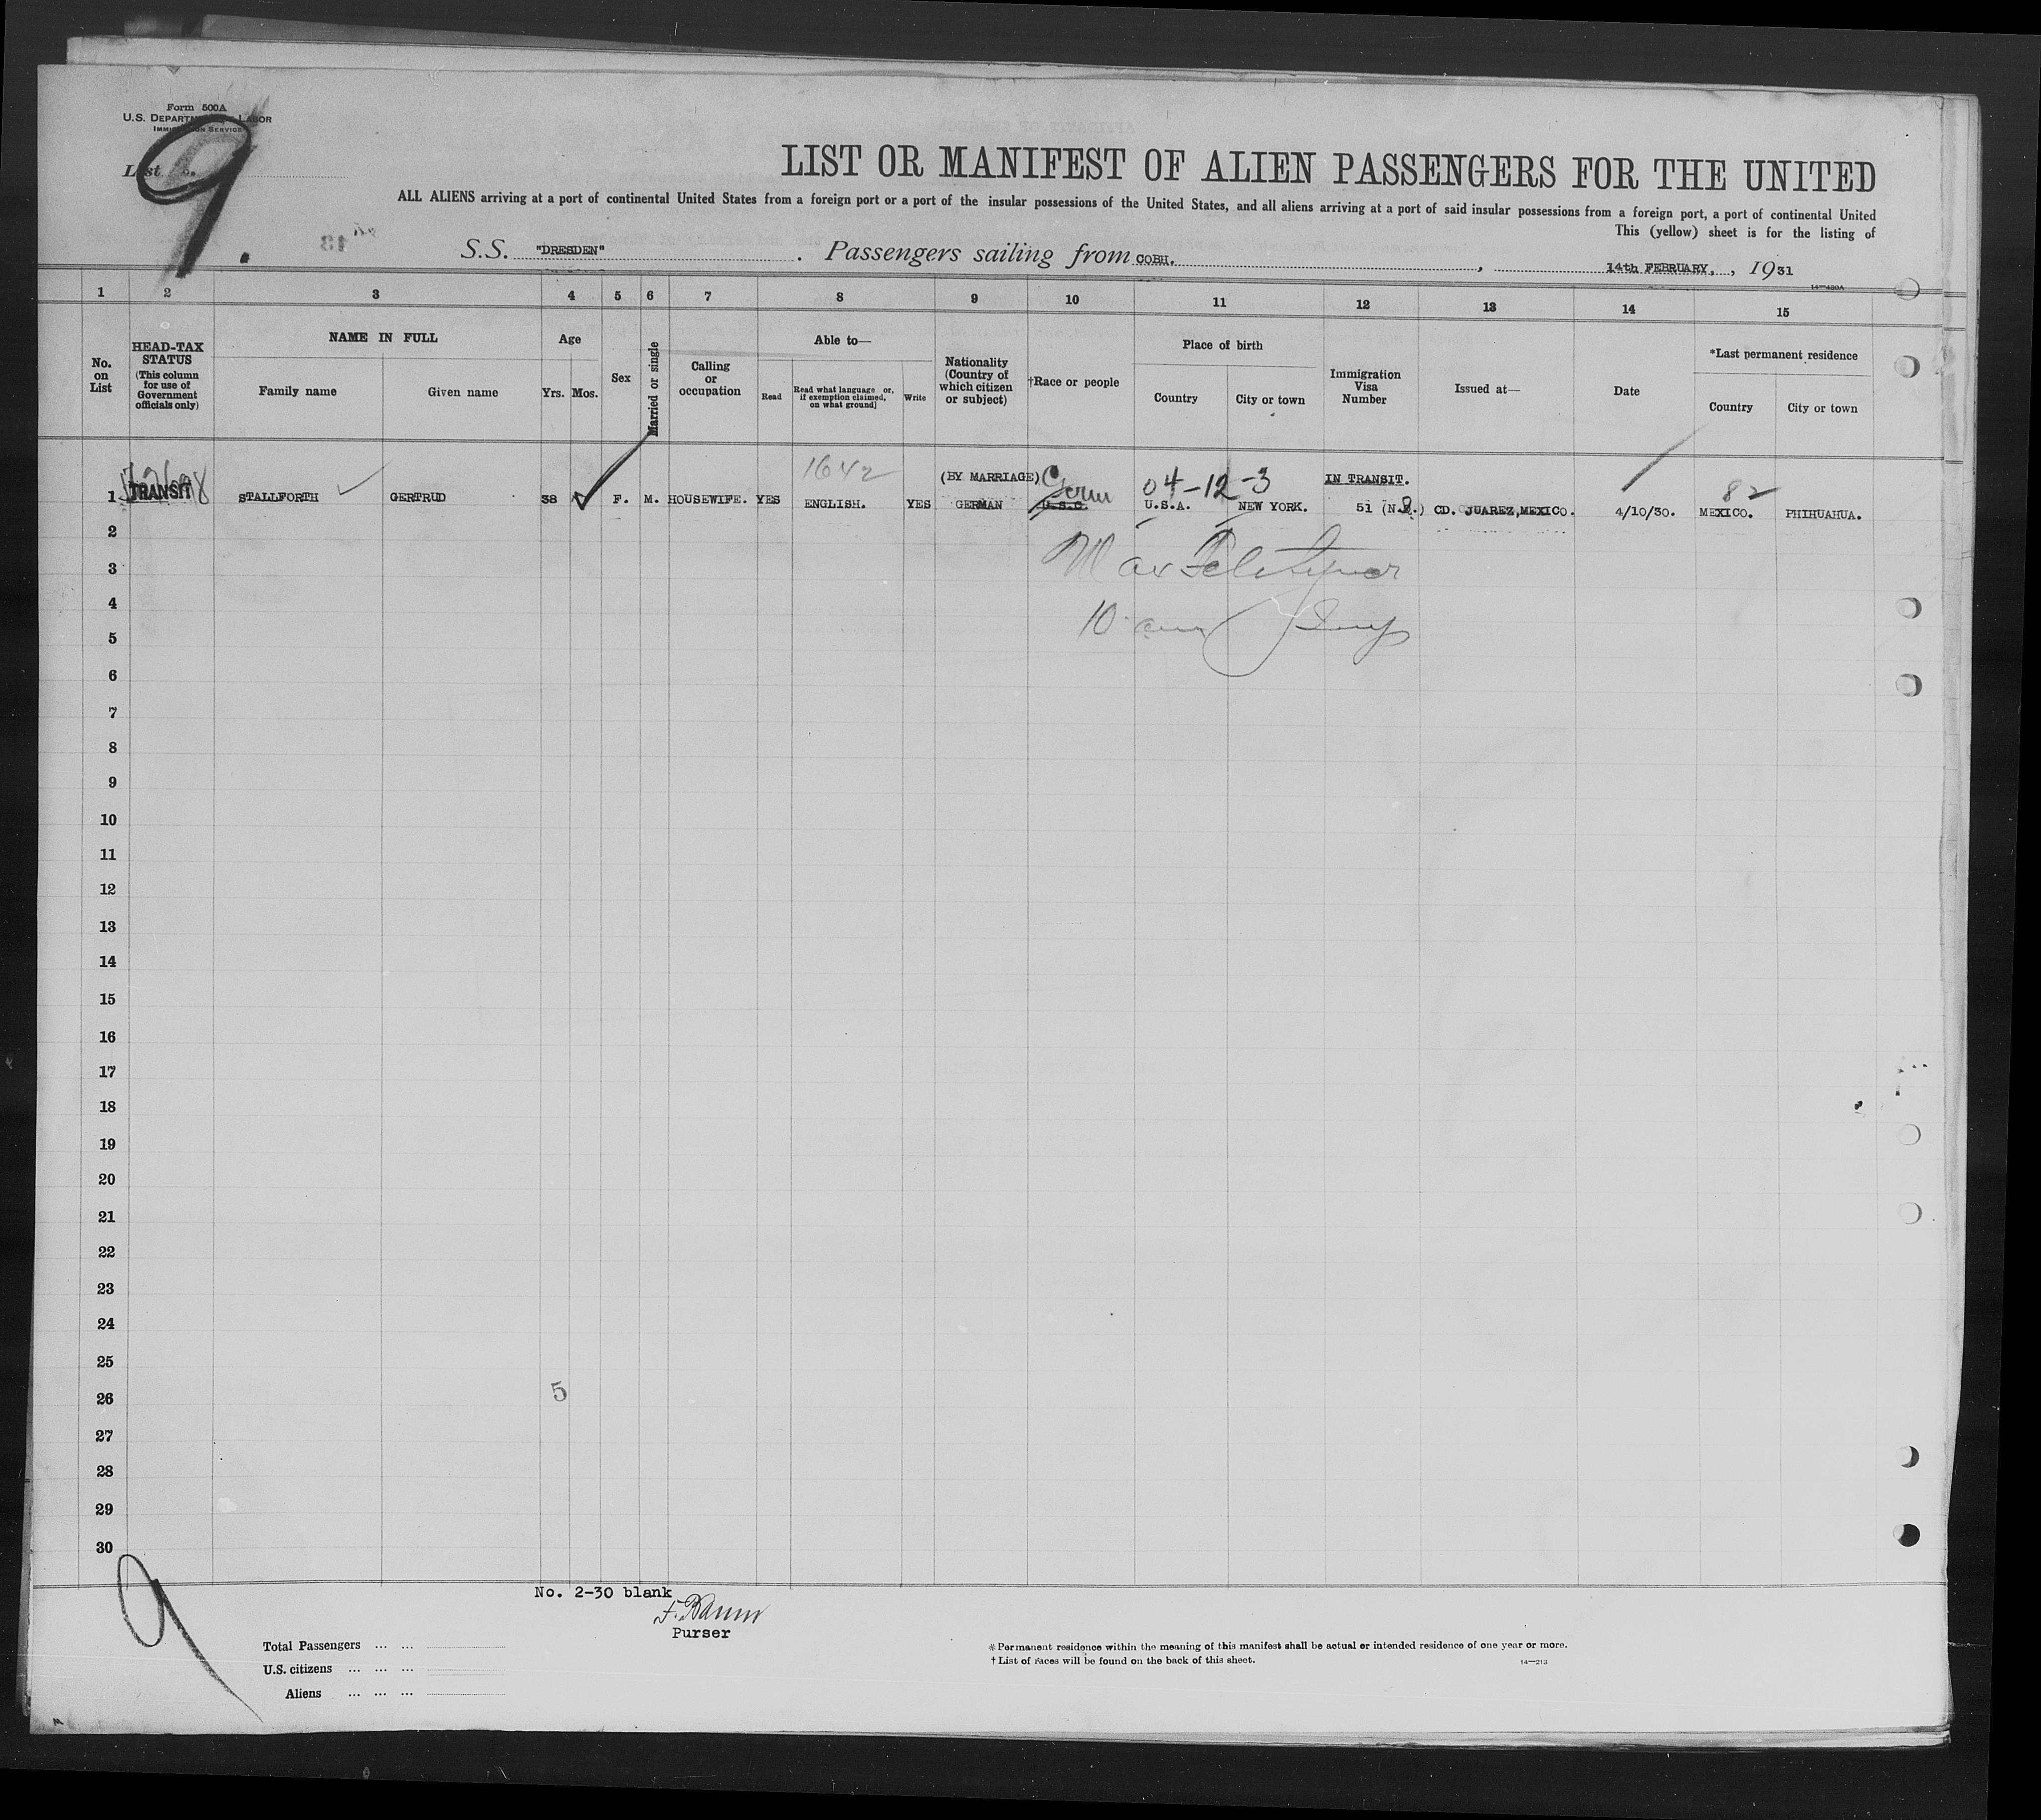 Form 500A
U.S. DEPARTMENT OF LABOR
IMMIGRATION SERVICE
List
9.
LIST OR MANIFEST OF ALIEN PASSENGERS FOR THE UNITED
ALL ALIENS arriving at a port of continental United States from a foreign port or a port of the insular possessions of the United States, and all aliens arriving at a port of said insular possessions from a foreign port, a port of continental United
This (yellow) sheet is for the listing of
S.S. "DRESDEN". Passengers sailing from COBH., 14th FEBRUARY., 1931
14—430A
1 2 3 4 5 6 7 8 9 10 11 12 13 14 15
No. on List
HEAD-TAX STATUS (This column for use of Government officials only)
NAME IN FULL
Family name Given name
Age
Yrs. Mos.
Sex
Married or single
Calling or occupation
Able to—
Read
Read what language or, if exemption claimed, on what ground]
Write
Nationality (Country of which citizen or subject)
†Race or people
Place of birth
Country City or town
Immigration Visa Number
Issued at—
Date
*Last permanent residence
Country City or town
1642 (BY MARRIAGE) Germ 04-12-3 IN TRANSIT. 82
1 TRANSIT STALLFORTH GERTRUD 38 F. M. HOUSEWIFE. YES ENGLISH. YES GERMAN U.S.C. U.S.A. NEW YORK. 51 (N.R.) CD. JUAREZ,MEXICO. 4/10/30. MEXICO. PHIHUAHUA.
2
Max
3
4
10 am
5
6
7
8
9
10
11
12
13
14
15
16
17
18
19
20
21
22
23
24
25
26
5
27
28
29
30
9
No. 2-30 blank
Purser
Total Passengers ... ...
U.S. citizens ... ... ...
Aliens ... ... ...
*Permanent residence within the meaning of this manifest shall be actual or intended residence of one year or more.
† List of races will be found on the back of this sheet.
14—213